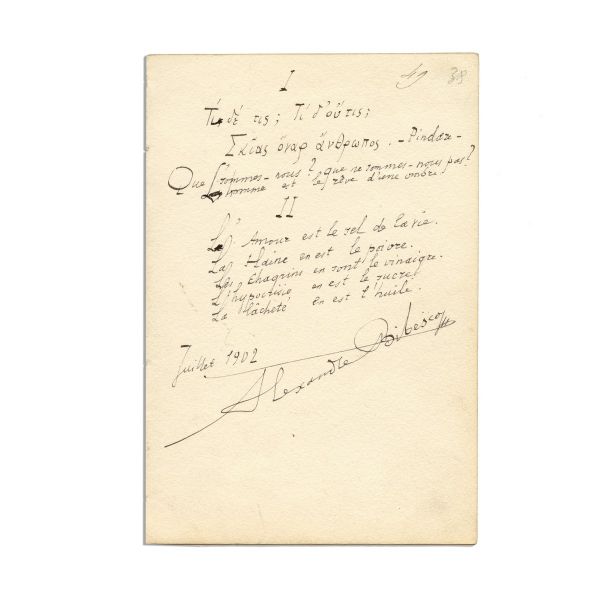 I
49 38
Τί δέ τις; Τί δ'οὔτις;
Σκίας ὄναρ ἄνθρωπος. - Pindare -
Que sommes-nous? que ne sommes-nous pas?
L'homme est le rêve d'une ombre.
II
L'Amour est le sel de la vie.
La Haine en est le poivre.
Les Chagrins en sont le vinaigre.
L'hypocrisie en est le sucre
La lâcheté en est l'huile.
Juillet 1902
Alexandre Bibesco